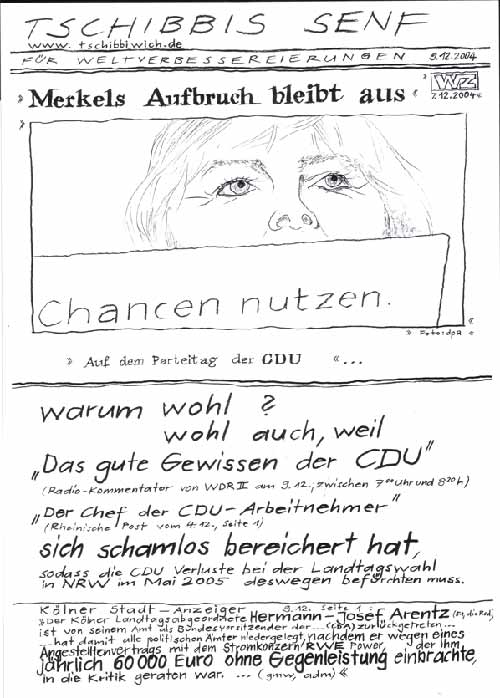 TSCHIBBIS SENF
www.tschibbiwich.de
FÜR WELTVERBESSEREIERUNGEN 5.12.2004
» Merkels Aufbruch bleibt aus «
» WZ
7.12.2004 «
Chancen nutzen.
» Foto: dpa «
» Auf dem Parteitag der CDU «...
warum wohl ?
wohl auch, weil
„Das gute Gewissen der CDU"
(Radio-Kommentator von WDR II am 9.12., zwischen 7⁰⁰ Uhr und 8²⁰ h)
„Der Chef der CDU-Arbeitnehmer"
(Rheinische Post vom 4.12., Seite 1)
sich schamlos bereichert hat,
sodass die CDU Verluste bei der Landtagswahl
in NRW im Mai 2005 deswegen befürchten muss.
Kölner Stadt-Anzeiger 9.12. Seite 1:
»Der Kölner Landtagsabgeordnete Hermann-Josef Arentz
ist von seinem Amt als Bundesvorsitzender der ... (CDA) zurückgetreten...
... hat damit alle politischen Ämter niedergelegt, nachdem er wegen eines
Angestelltenvertrags mit dem Stromkonzern RWE Power, der ihm
jährlich 60000 Euro ohne Gegenleistung einbrachte,
in die Kritik geraten war. ... (gmw, adm) «